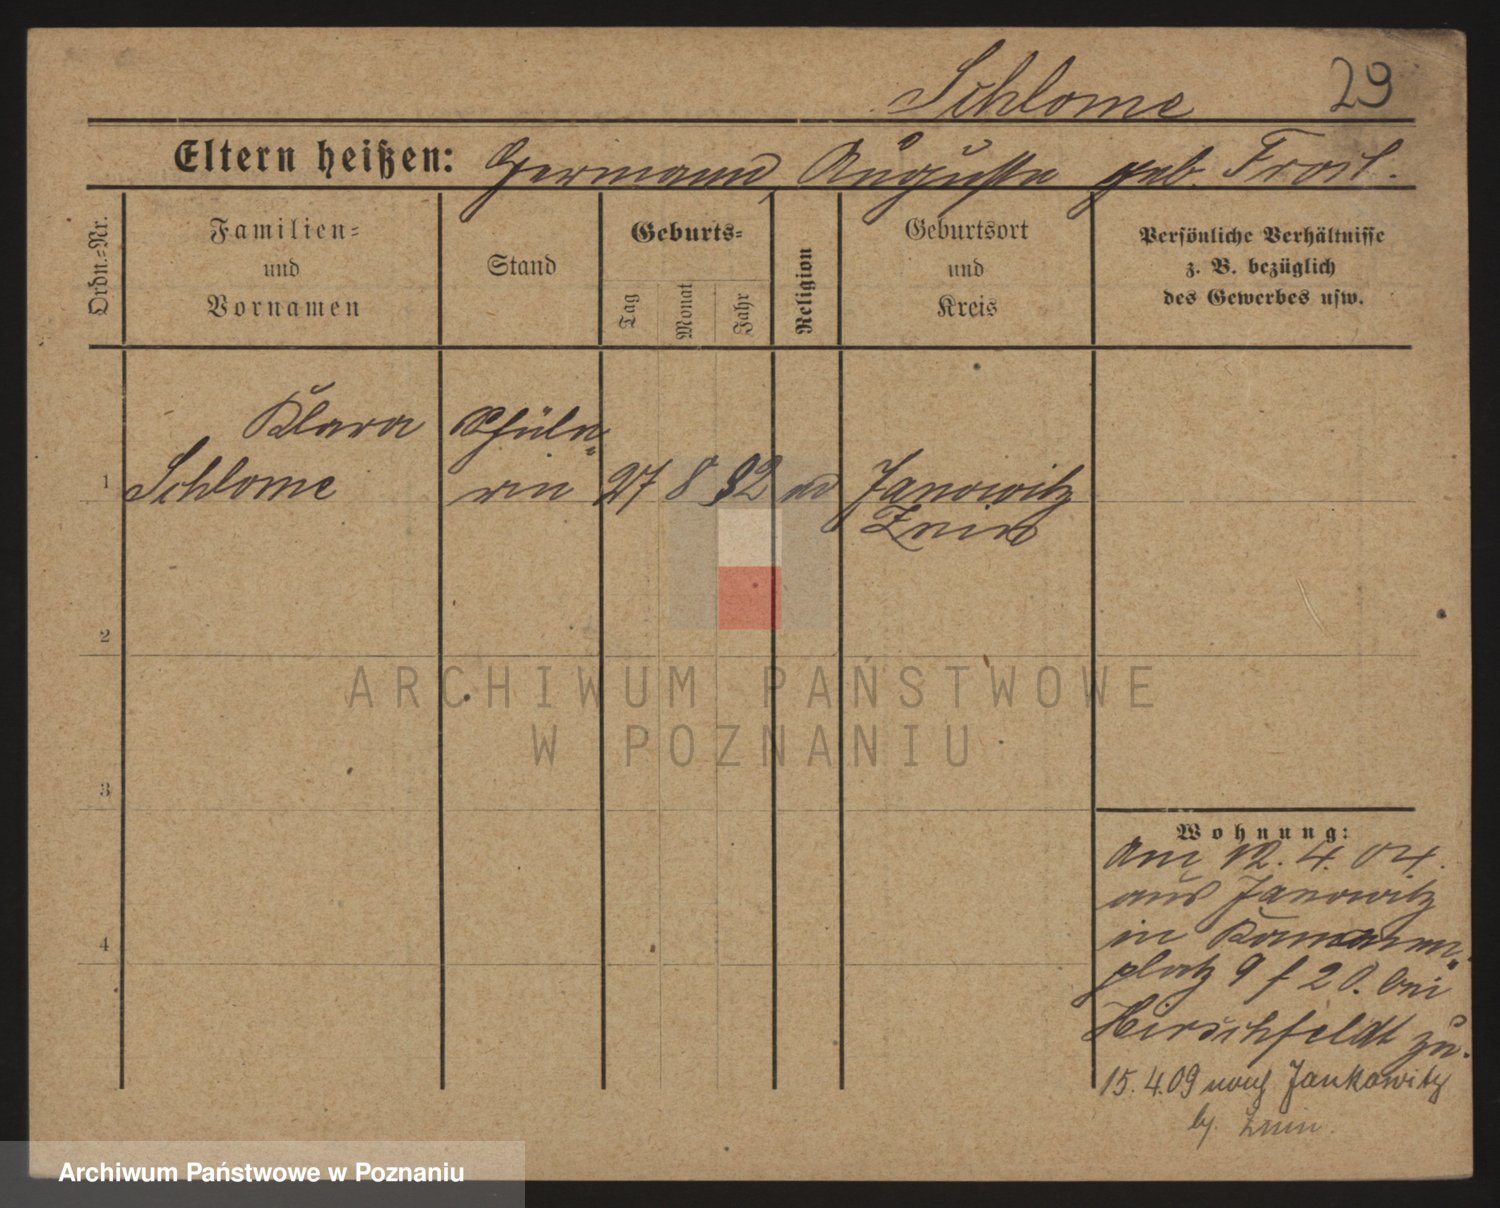 Schlome 29
Eltern heißen: Hermann, Auguste geb. Frost.
Ordn.-Nr.
Familien-
und
Vornamen
Stand
Geburts-
Tag
Monat
Jahr
Religion
Geburtsort
und
Kreis
Persönliche Verhältnisse
z. B. bezüglich
des Gewerbes usw.
Klara Schüle-
1 Schlome rin 27 8 92 Janowitz
Znin
2
3
4
Wohnung:
Am 12. 4. 04.
aus Janowitz
in
platz 9 f 20. bei
Hirschfeldt zu.
15.4.09 nach Jankowitz
b/. Znin.
ARCHIWUM PAŃSTWOWE
W POZNANIU
Archiwum Państwowe w Poznaniu